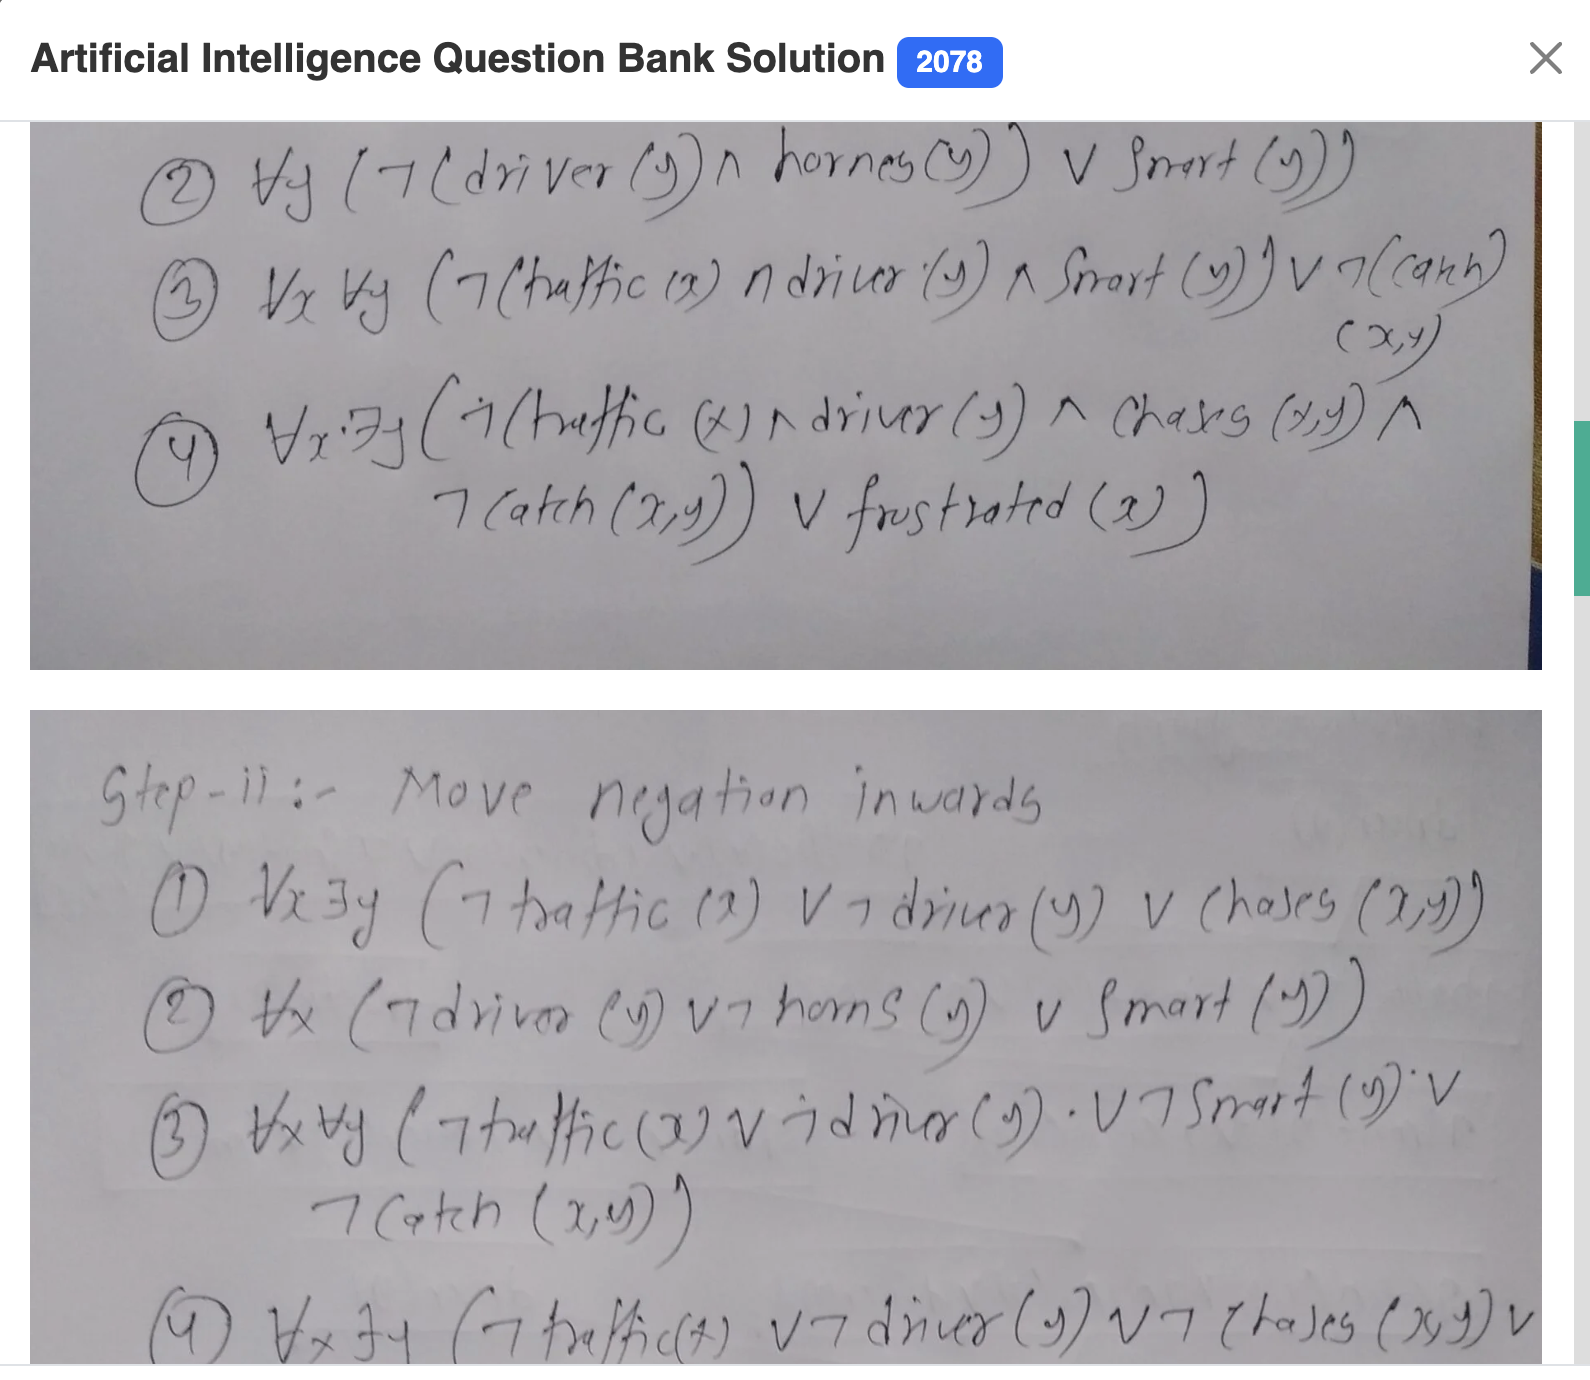 Artificial Intelligence Question Bank Solution 2078
② ∀y (¬(driver(y) ∧ hornes(y)) ∨ Smart(y))
③ ∀x ∀y (¬(traffic(x) ∧ driver(y) ∧ Smart(y)) ∨ ¬(catch)
(x,y)
④ ∀x ∃y (¬(traffic(x) ∧ driver(y) ∧ Chases(x,y) ∧
¬Catch(x,y)) ∨ frustrated(x))
Step-ii:- Move negation inwards
① ∀x ∃y (¬traffic(x) ∨ ¬driver(y) ∨ Chases(x,y))
② ∀x (¬driver(y) ∨ ¬horns(y) ∨ Smart(y))
③ ∀x ∀y (¬traffic(x) ∨ ¬driver(y) ∨ ¬Smart(y) ∨
¬Catch(x,y))
④ ∀x ∃y (¬traffic(x) ∨ ¬driver(y) ∨ ¬Chases(x,y) ∨